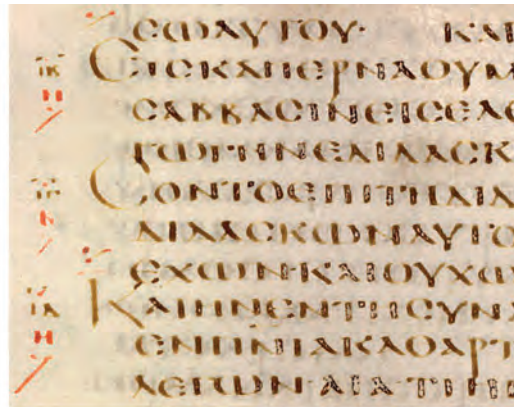 ϹΩΑΥΤΟΥ· ΚΑΙ
ΕΙϹΚΑΠΕΡΝΑΟΥΜ
ϹΑΒΒΑϹΙΝΕΙϹΕΛΘ
ΓΩΓΗΝΕΔΙΔΑϹΚ
ϹΟΝΤΟΕΠΙΤΗΔΙΔΑ
ΔΙΔΑϹΚΩΝΑΥΤΟ
ΕΧΩΝ·ΚΑΙΟΥΧΩ
ΚΑΙΗΝΕΝΤΗϹΥΝΑ
ΕΝΠΝΙΑΚΑΘΑΡΤ
ΛΕΓΩΝ